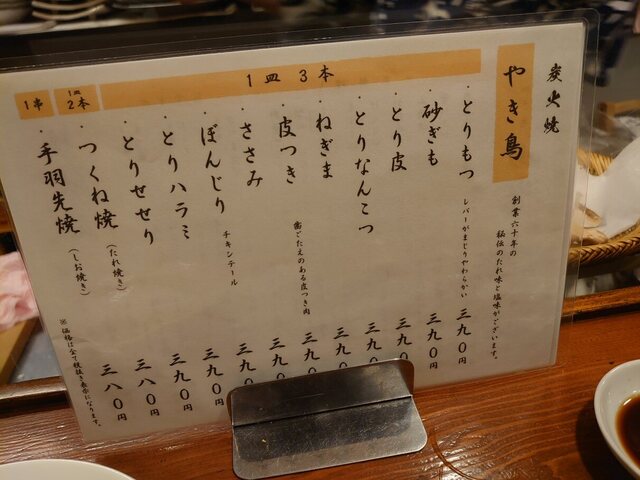 炭火焼
やき鳥
創業六十年の
秘伝のたれ味と塩味がございます。
1皿3本
・とりもつ レバーがまじりやわらかい 三九0円
・砂ぎも 三九0円
・とり皮 三九0円
・とりなんこつ 三九0
・ねぎま 三九0
・皮つき 歯ごたえのある皮つき肉 三九0
・ささみ 三九0
・ぼんじり チキンテール 三九0
・とりハラミ 三九0円
・とりせせり 三九0円
1皿2本
・つくね焼 (たれ焼き) 三八0円
1串
・手羽先焼 (しお焼き) 三八0円
※価格は全て税抜き表示になります。